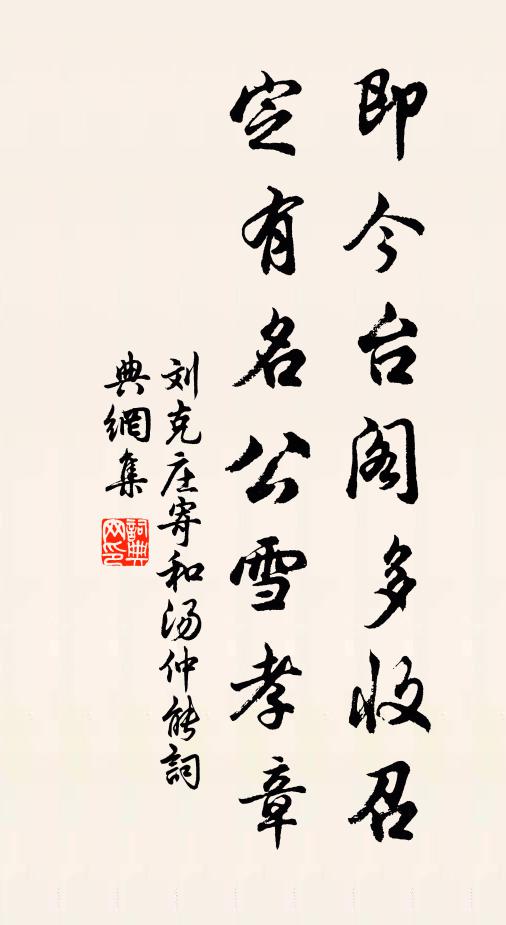 即今台阁多收召
定有名公雪孝章
刘克庄寄和汤仲能詞
典網集
詞典网印